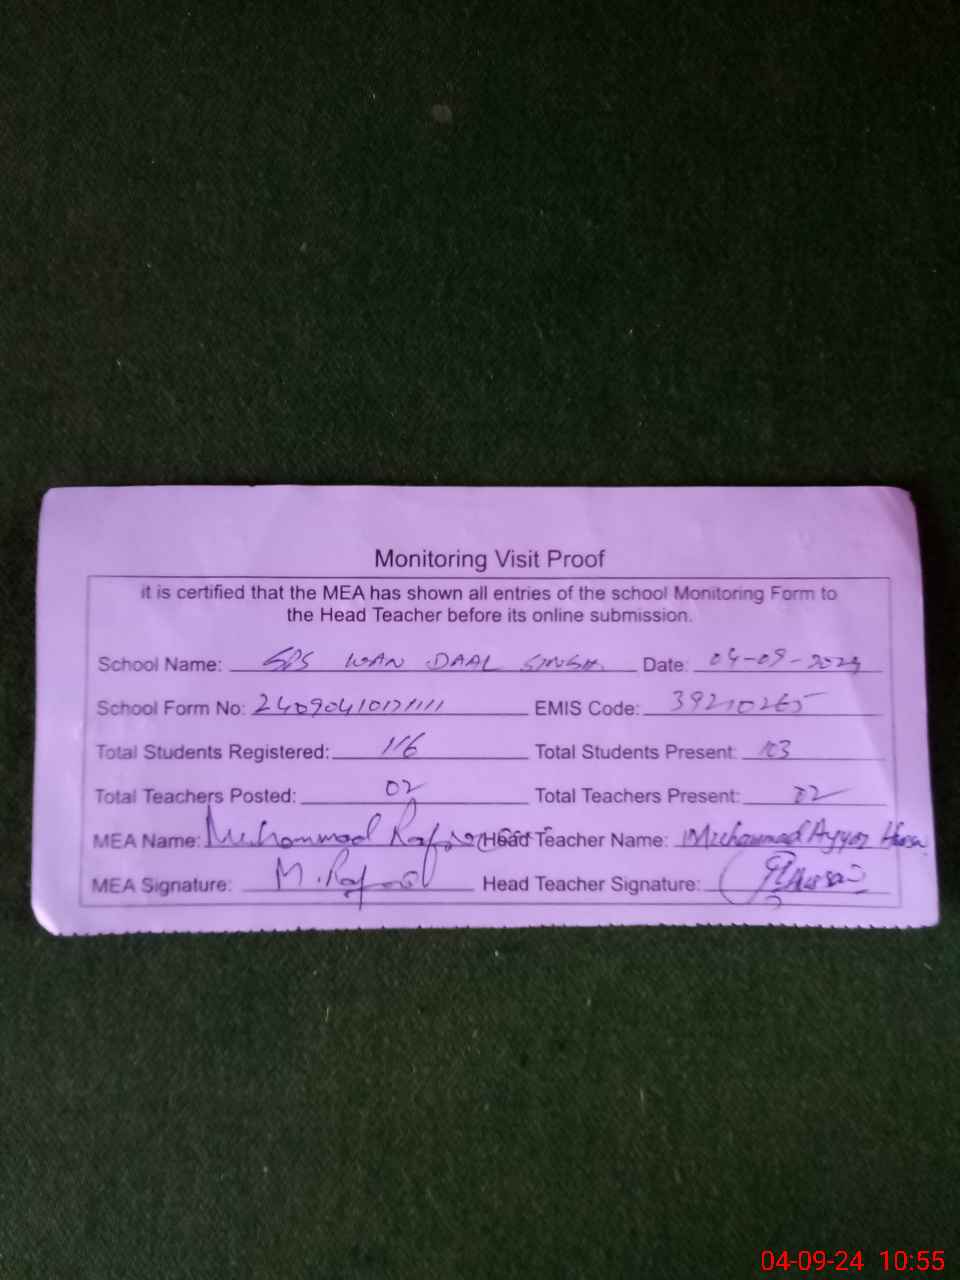 Monitoring Visit Proof
it is certified that the MEA has shown all entries of the school Monitoring Form to
the Head Teacher before its online submission.
School Name: GPS WAN DAAL SINGH Date: 04-09-2024
School Form No: EMIS Code: 39210265
Total Students Registered: 116 Total Students Present: 103
Total Teachers Posted: 02 Total Teachers Present: 02
MEA Name: Muhammad Head Teacher Name: Muhammad
MEA Signature: Head Teacher Signature:
04-09-24 10:55